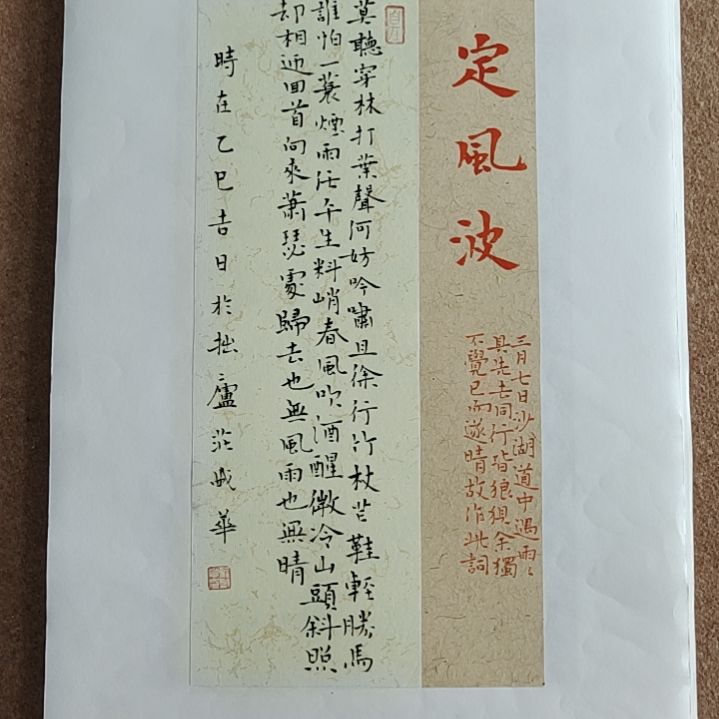 定風波
三月七日沙湖道中遇雨〻
具先去同行皆狼狽余獨
不覺已而遂晴故作此詞
莫聽穿林打葉聲何妨吟嘯且徐行竹杖芒鞋輕勝馬
誰怕一蓑煙雨任平生料峭春風吹酒醒微冷山頭斜照
却相迎回首向來蕭瑟處歸去也無風雨也無晴
時在乙巳吉日於拙廬莊華